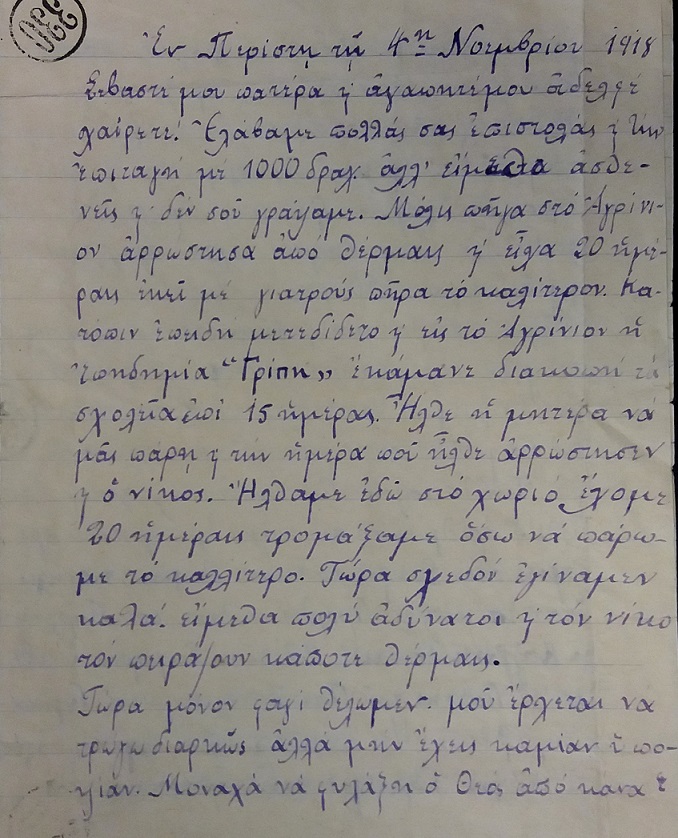 330
Ἐν Περίστῃ τῇ 4ῃ Νοεμβρίου 1918
Σεβαστέ μου πατέρα ϗ ἀγαπητέ μου ἀδελφέ
χαίρετε! Ἐλάβαμε πολλάς σας ἐπιστολάς ϗ τὴν
ἐπιταγὴ μὲ 1000 δραχ. ἀλλ' εἴμεθα ἀσθε-
νεῖς ϗ δέν σοῦ γράψαμε. Μόλις πῆγα στὸ Ἀγρίνι-
ον ἀρρώστησα ἀπό θέρμαις ϗ εἶχα 20 ἡμέ-
ραις ἐκεῖ μέ γιατρούς πῆρα τὸ καλίτερον. Κα-
τόπιν ἐπειδή μετεδίδετο ϗ εἰς τὸ Ἀγρίνιον ἡ
ἐπιδημία "Γρίπη„ ἐκάμανε διακοπή τὰ
σχολεῖα ἐπί 15 ἡμέρας. Ἦλθε ἡ μητέρα νά
μᾶς πάρῃ ϗ τὴν ἡμέρα ποῦ ἦλθε ἀρρώστησεν
ϗ ὁ νίκος. Ἤλθαμε ἐδῶ στὸ χωριό ἔχομε
20 ἡμέραις τρομάξαμε ὅσω νά πάρω-
με τὸ καλλίτερο. Τώρα σχεδόν ἐγίναμεν
καλά. εἴμεθα πολύ ἀδύνατοι ϗ τόν νίκο
τόν πειράζουν κάποτε θέρμαις.
Τώρα μόνον φαγί θέλωμεν. μοῦ ἔρχεται να
τρώγω διαρκῶς ἀλλά μήν ἔχεις καμίαν ὑπο-
ψίαν. Μοναχά νά φυλάξῃ ὁ Θεός ἀπό